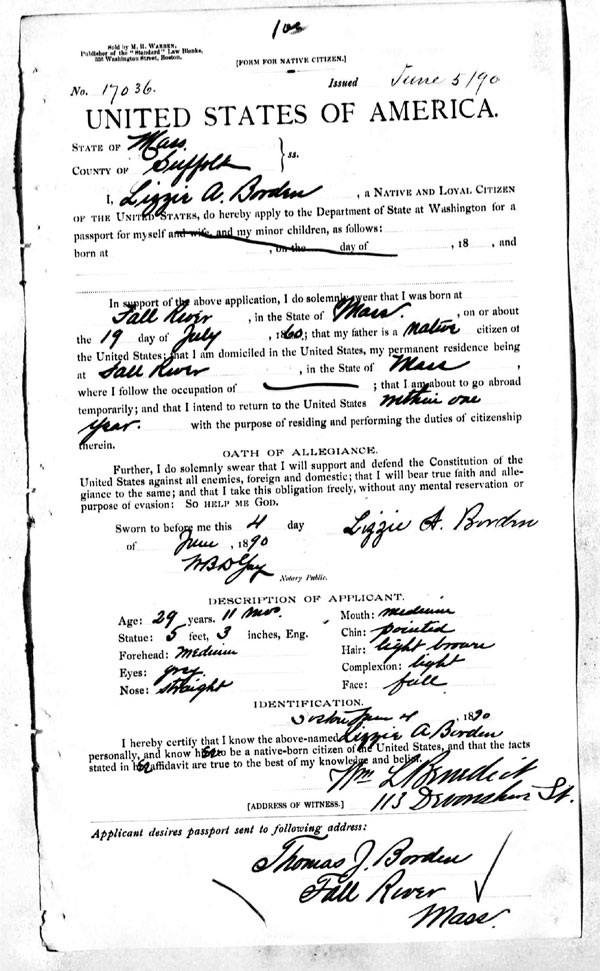 Sold by M. R. WARREN,
Publisher of the "Standard" Law Blanks,
336 Washington Street, Boston.
[FORM FOR NATIVE CITIZEN.]
No. 17036. Issued June 5/90
UNITED STATES OF AMERICA.
STATE OF Mass.
COUNTY OF Suffolk } ss.
I, Lizzie A. Borden, a NATIVE AND LOYAL CITIZEN
OF THE UNITED STATES, do hereby apply to the Department of State at Washington for a
passport for myself and wife, and my minor children, as follows:
born at , on the day of , 18 , and
In support of the above application, I do solemnly swear that I was born at
Fall River, in the State of Mass., on or about
the 19 day of July, 1860; that my father is a native citizen of
the United States; that I am domiciled in the United States, my permanent residence being
at Fall River, in the State of Mass,
where I follow the occupation of ; that I am about to go abroad
temporarily; and that I intend to return to the United States within one
year. with the purpose of residing and performing the duties of citizenship
therein.
OATH OF ALLEGIANCE.
Further, I do solemnly swear that I will support and defend the Constitution of the
United States against all enemies, foreign and domestic; that I will bear true faith and alle-
giance to the same; and that I take this obligation freely, without any mental reservation or
purpose of evasion: SO HELP ME GOD.
Sworn to before me this 4 day Lizzie A. Borden
of June, 1890
Notary Public.
DESCRIPTION OF APPLICANT.
Age: 29 years. 11 mos. Mouth: medium
Statue: 5 feet, 3 inches, Eng. Chin: pointed
Forehead: Medium Hair: light brown
Eyes: grey Complexion: light
Nose: straight Face: full
IDENTIFICATION.
Boston June 4, 1890
I hereby certify that I know the above-named Lizzie A Borden
personally, and know her to be a native-born citizen of the United States, and that the facts
stated in her affidavit are true to the best of my knowledge and belief.
Wm L Benedict
[ADDRESS OF WITNESS.] 113 Devonshire St.
Applicant desires passport sent to following address:
Thomas J. Borden
Fall River
Mass.